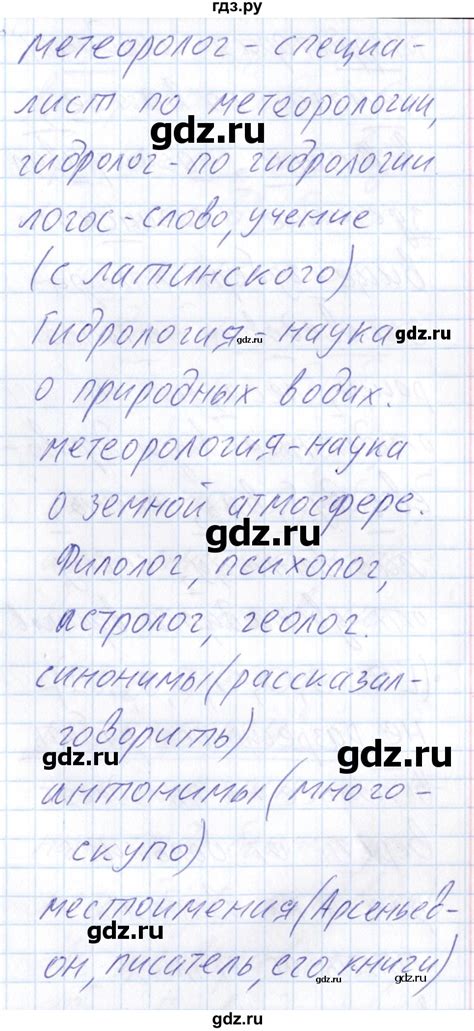 гдз.ру
метеоролог - специа-
лист по метеорологии,
gdz.ru
гидролог - по гидрологии
логос - слово, учение
(с латинского)
Гидрология - наука
gdz.ru
gdz.ru
о природных водах.
метеорология - наука
о земной атмосфере.
gdz.ru
Филолог, психолог,
астролог, геолог.
синонимы (рассказал-
говорить)
gdz.ru
gdz.ru
антонимы (много-
скупо)
местоимения (Арсеньев-
gdz.ru
он, писатель, его книги)
gdz.ru
gdz.ru